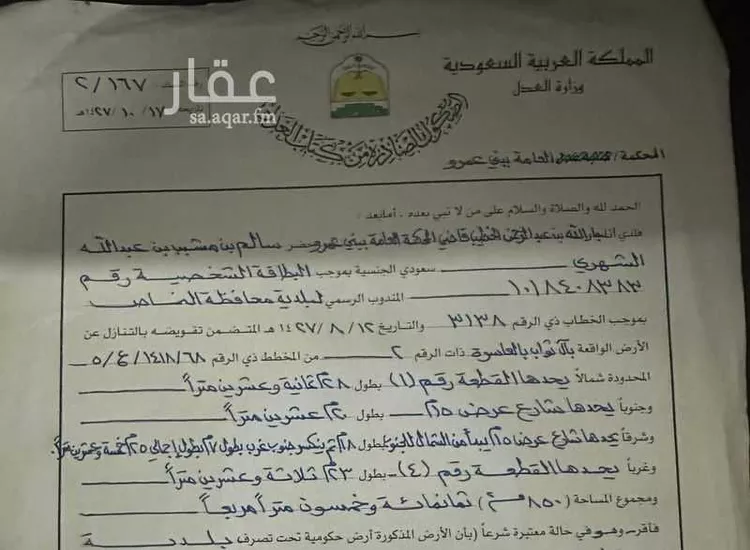 بسم الله الرحمن الرحيم
المملكة العربية السعودية
وزارة العدل
المحكمة / العامة ببني عمرو
٢/١٦٧
١٤٢٧/١٠/١٧هـ
عقار
sa.aqar.fm
الحمد لله والصلاة والسلام على من لا نبي بعده ، أما بعد :
فلدي أنا جارالله بن عبدالرحمن الخطيب قاضي المحكمة العامة ببني عمرو حضر سالم بن مشبب بن عبدالله
الشهري سعودي الجنسية بموجب البطاقة الشخصية رقم
١٠١٨٤٠٨٣٨٣ المندوب الرسمي لبلدية محافظة النماص
بموجب الخطاب ذي الرقم ٣١٣٨ والتاريخ ١٤٢٧/٨/١٢ هـ المتضمن تفويضه بالتنازل عن
الأرض الواقعة ذات الرقم ٢ من المخطط ذي الرقم ٥/ع/١٤١٨/٦٨
المحدودة شمالاً يحدها القطعة رقم (١) بطول ٢٨م ثمانية وعشرين متراً
وجنوباً يحدها شارع عرض ١٥م بطول ٢٠م عشرين متراً
وشرقاً يحدها شارع عرض ١٥م يبدأ من الشمال للجنوب بطول ١٨م ثم ينكسر جنوب غرب بطول ٧م بطول إجمالي ٢٥م خمسة وعشرين متراً.
وغرباً يحدها القطعة رقم (٤) بطول ٢٣م ثلاثة وعشرين متراً
ومجموع المساحة (٨٥٠م٢) ثمانمائة وخمسون متراً مربعاً
فأقر وهو في حالة معتبرة شرعاً (بأن الأرض المذكورة أرض حكومية تحت تصرف بلدية